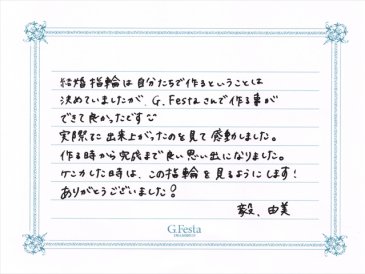 結婚指輪は自分たちで作るということは
決めていましたが、G.Festaさんで作る事が
できて良かったです
実際に出来上がったのを見て感動しました。
作る時から完成まで良い思い出になりました。
ケンカした時は、この指輪を見るようにします!
ありがとうございました!
毅、由美
G.Festa